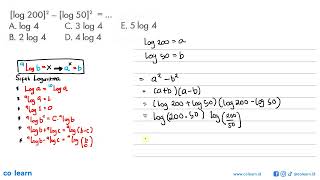 [log 200]² – [log 50]² = ...
A. log 4 C. 3 log 4 E. 5 log 4
B. 2 log 4 D. 4 log 4
ᵃlog b = x → aˣ = b
Sifat Logaritma
log a = ¹⁰log a
ᵃlog a = 1
ᵃlog 1 = 0
ᵃlog bᶜ = c · ᵃlog b
ᵃlog b + ᵃlog c = ᵃlog (b·c)
ᵃlog b - ᵃlog c = ᵃlog (b/c)
log 200 = a
log 50 = b
= a² - b²
= (a+b) (a-b)
= (log 200 + log 50) (log 200 - log 50)
= log (200 · 50) log (200/50)
co learn
www.colearn.id
@colearn.id